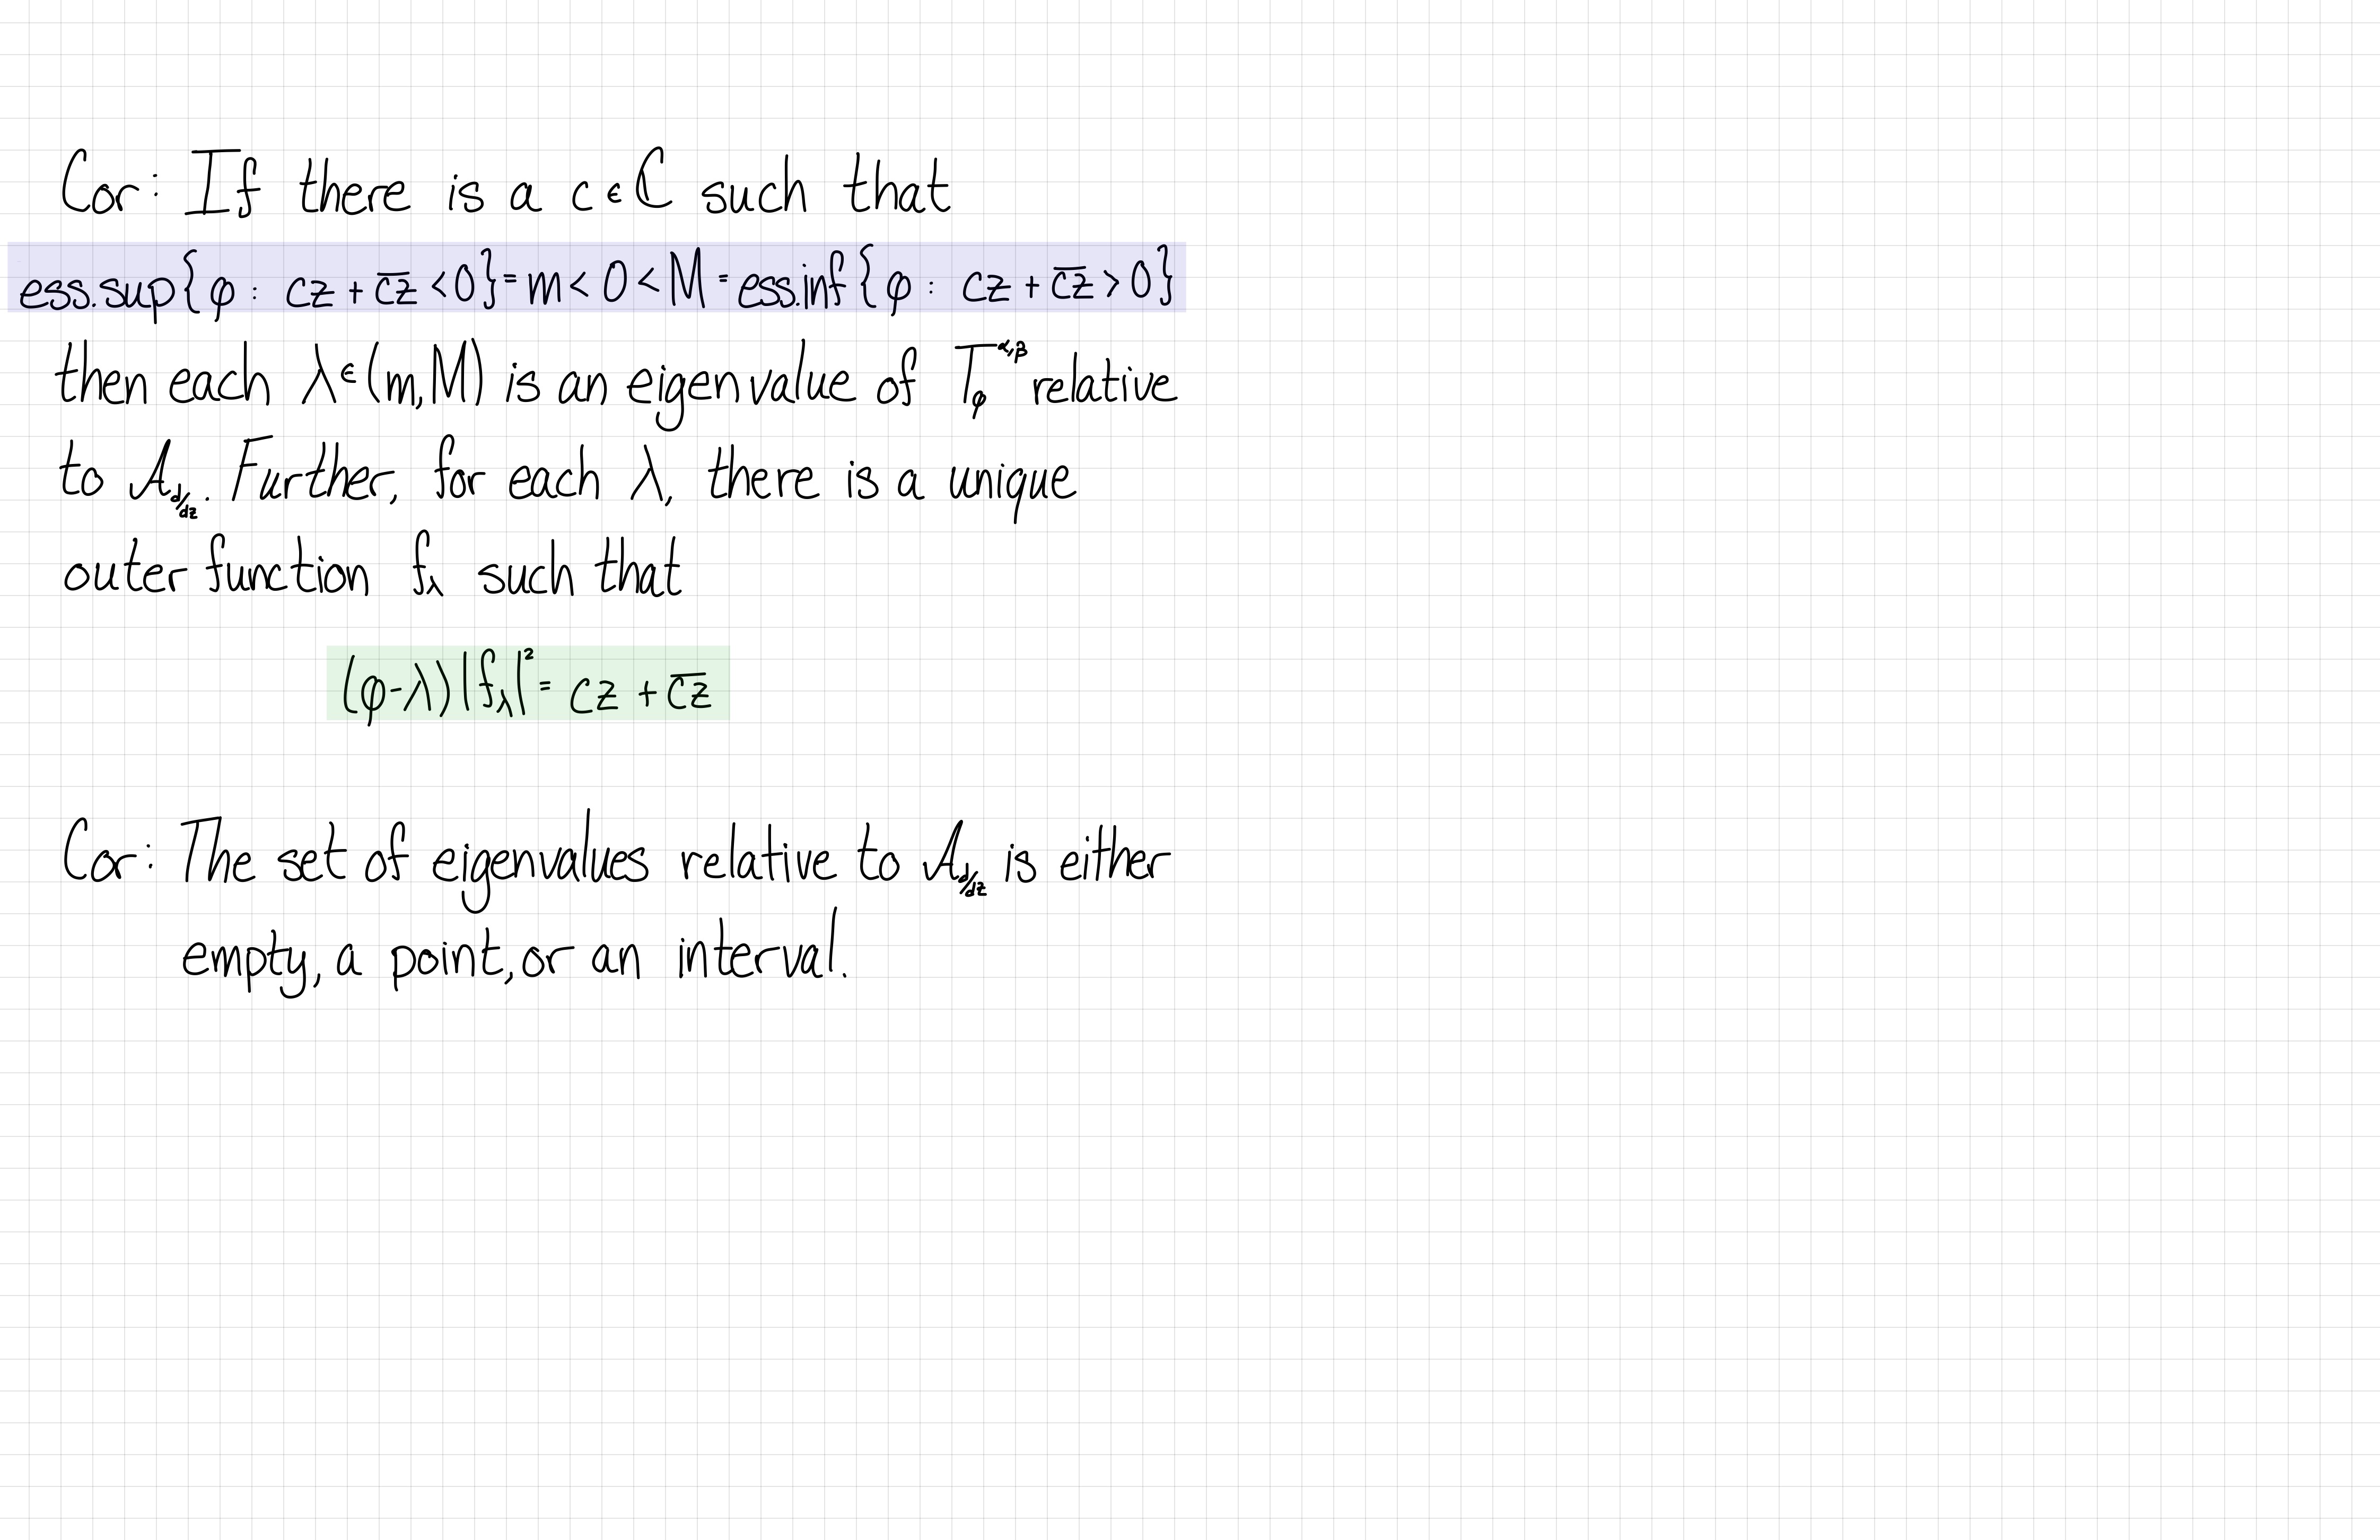 Cor: If there is a c ∈ ℂ such that
ess.sup{φ : cz + \overline{cz} < 0} = m < 0 < M = ess.inf{φ : cz + \overline{cz} > 0}
then each λ ∈ (m, M) is an eigenvalue of T_φ^{α,β} relative
to 𝒜_{d/dz}. Further, for each λ, there is a unique
outer function f_λ such that
(φ-λ)|f_λ|² = cz + \overline{cz}
Cor: The set of eigenvalues relative to 𝒜_{d/dz} is either
empty, a point, or an interval.